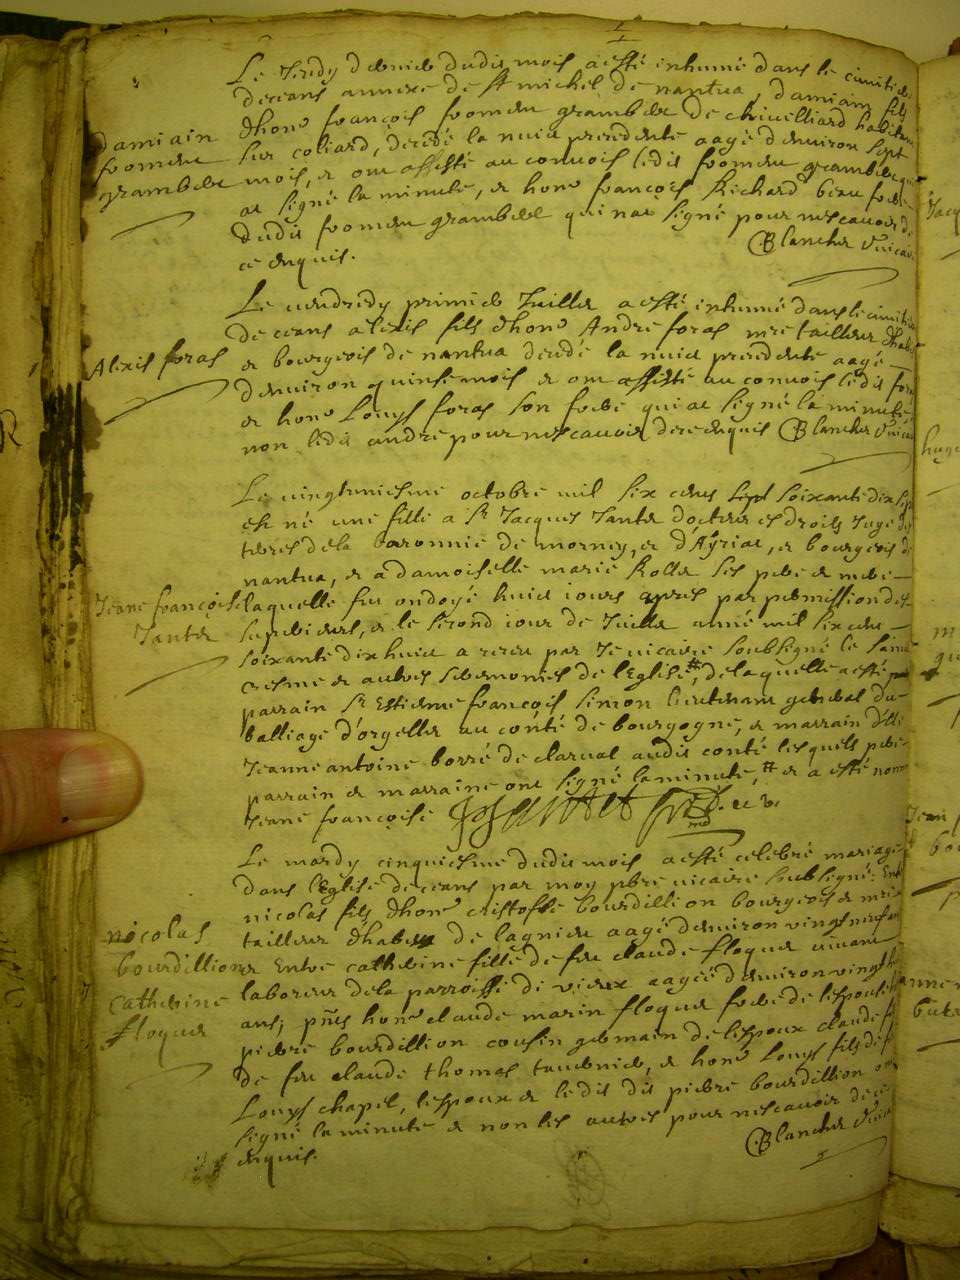 Le Jeudy dernier dudit mois a esté inhumé dans le cimitier
de ceans annexe de St michel de nantua, damiain fils
damiain
fromen
grambelle
d'hone françois fromen grambelle de chivilliard habitan
sur coliard, decedé la nuict precedente aagé d'environ sept
mois, et ont assisté au convois ledit fromen grambelle qui
at signé la minute, et hone françois Richard beau frere
dudit fromen grambelle qui n'at signé pour ne scavoir de
ce enquis. Blanchet Vicaire
Le vendredy premier Juillet a esté inhumé dans le cimitier
de ceans alexis fils d'hone André foras mre tailleur d'habit
Alexis foras
et bourgeois de nantua decedé la nuict precedente aagé
d'environ quinse mois et ont assisté au convois ledit foras
et hone Louys foras son frere qui at signé la minute
non ledit andré pour ne scavoir de ce enquis Blanchet Vicaire
Le vingtuniesme octobre mil six cens sept soixante dix sept
est né une fille a Sr Jacques Jantet docteur es droits Juge des
terres de la baronnie de mornay, et d'Ayriat, et bourgeois de
nantua, et a damoiselle marie Rollet ses pere et mere
Jeane françoise
Jantet
laquelle fut ondoyé huict iours apres par permission des
superieurs, et le second iour de Juillet anné mil six cens
soixante dix huict a receu par Je vicaire soubsigné le saint
cresme et autres seremonies de l'Eglise #, de laquelle a esté
parrain Sr Estienne françois simon lieutenant general du
balliage d'orgellet au conté de bourgogne, et marrain d'lle
Jeanne antoine borré de clerval audit conté lesquels pere
parrain et marraine ont signé la minute, # et a esté nommé
Jeane françoise Jantet
Le mardy cinquiesme dudit mois a esté celebré mariage
dans l'Eglise de ceans par moy pbre vicaire soubsigné: Entre
nicolas
bourdillion
catherine
floquet
nicolas fils d'hone cristofle bourdillion bourgeois et mre
tailleur d'habits de lagnieu aagé d'environ vingt neuf ans
et Entre catherine fille de feu claude floquet vivant
laboreur de la parroisse de vieux aagée d'environ vingt
ans; pnts hone claude marin floquet frere de l'espouse
pierre bourdillion cousin germain de l'espoux claude fils
de feu claude thomas tavernier, et hone Louys fils de feu
Louys chapel, l'espoux et ledit pierre bourdillion ont
signé la minute et non les autres pour ne scavoir de ce
enquis. Blanchet Vicaire